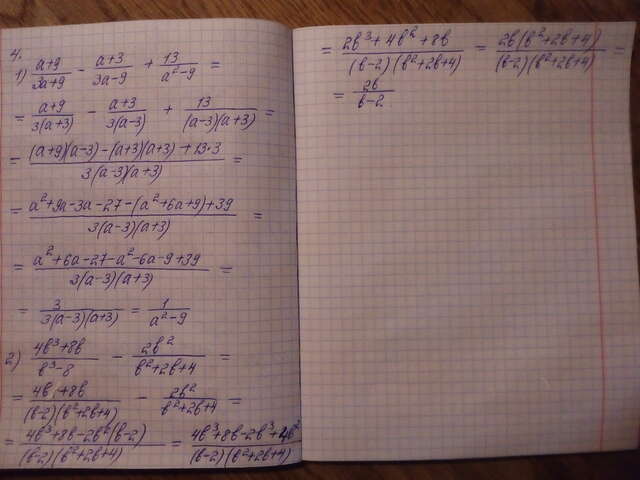 4.
1) (a+9)/(3a+9) - (a+3)/(3a-9) + 13/(a²-9) =
= (a+9)/(3(a+3)) - (a+3)/(3(a-3)) + 13/((a-3)(a+3)) =
= ((a+9)(a-3)-(a+3)(a+3)+13·3)/(3(a-3)(a+3)) =
= (a²+9a-3a-27-(a²+6a+9)+39)/(3(a-3)(a+3)) =
= (a²+6a-27-a²-6a-9+39)/(3(a-3)(a+3)) =
= 3/(3(a-3)(a+3)) = 1/(a²-9)
2) (4b³+8b)/(b³-8) - 2b²/(b²+2b+4) =
= (4b³+8b)/((b-2)(b²+2b+4)) - 2b²/(b²+2b+4) =
= (4b³+8b-2b²(b-2))/((b-2)(b²+2b+4)) = (4b³+8b-2b³+4b²)/((b-2)(b²+2b+4))
= (2b³+4b²+8b)/((b-2)(b²+2b+4)) = (2b(b²+2b+4))/((b-2)(b²+2b+4)) =
= 2b/(b-2)